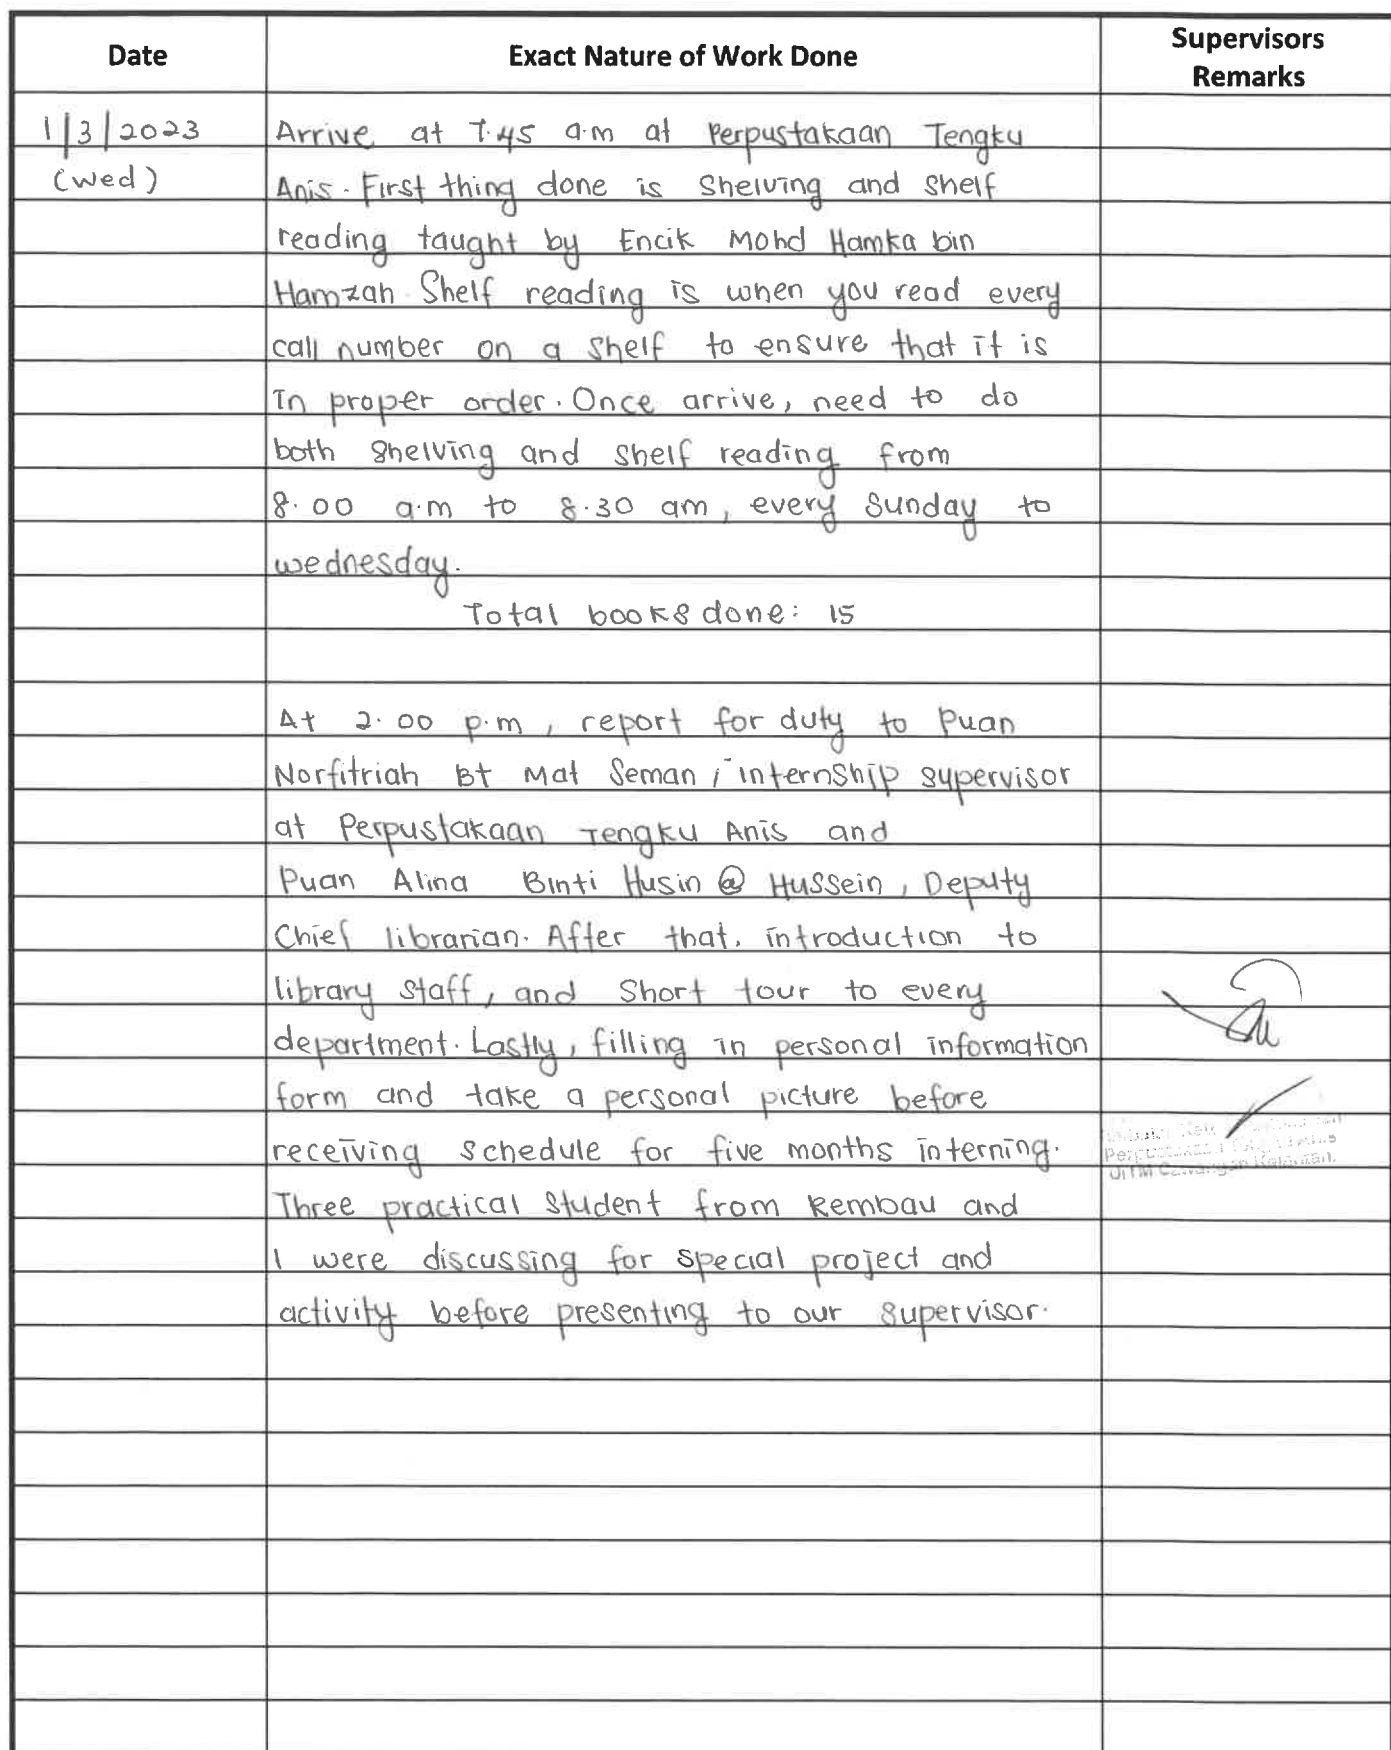 Date Exact Nature of Work Done Supervisors
Remarks
1/3/2023 Arrive at 7.45 a.m at Perpustakaan Tengku
(Wed) Anis. First thing done is shelving and shelf
reading taught by Encik Mohd Hamka bin
Hamzah. Shelf reading is when you read every
call number on a shelf to ensure that it is
in proper order. Once arrive, need to do
both shelving and shelf reading from
8.00 a.m to 8.30 am, every Sunday to
wednesday.
Total books done: 15
At 2.00 p.m, report for duty to Puan
Norfitriah Bt Mat Seman, internship supervisor
at Perpustakaan Tengku Anis and
Puan Alina Binti Husin @ Hussein, Deputy
Chief librarian. After that, introduction to
library staff, and short tour to every
department. Lastly, filling in personal information
form and take a personal picture before
receiving schedule for five months interning.
Three practical student from Rembau and
I were discussing for special project and
activity before presenting to our supervisor.
UiTM Cawangan Kelantan.